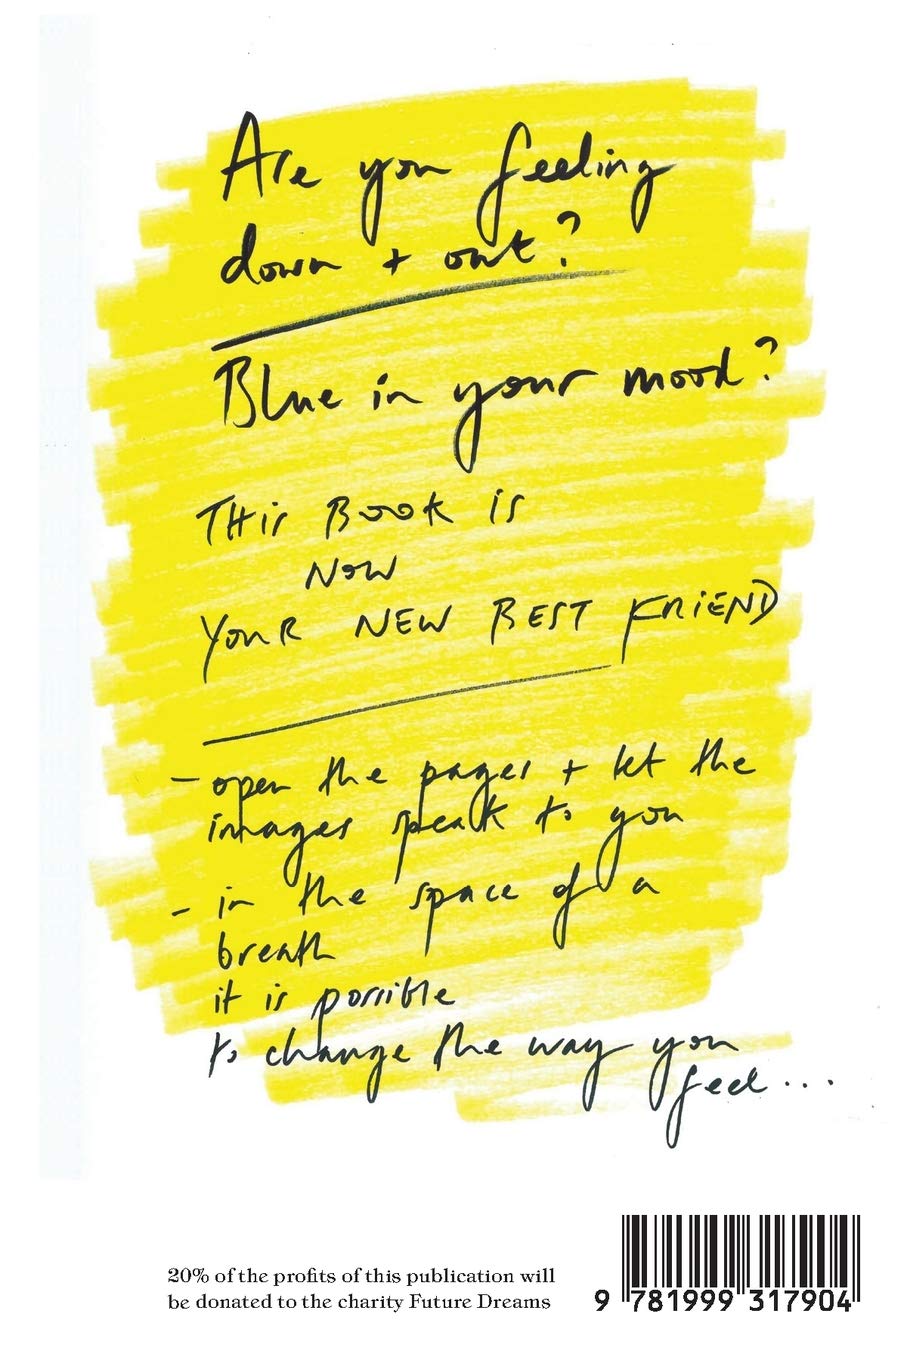 Are you feeling
down + out?
Blue in your mood?
THis BOOK is
NOW
YOUR NEW BEST FRiEND
- open the pages + let the
images speak to you
- in the space of a
breath
it is possible
to change the way you
feel...
20% of the profits of this publication will
be donated to the charity Future Dreams
9 781999 317904